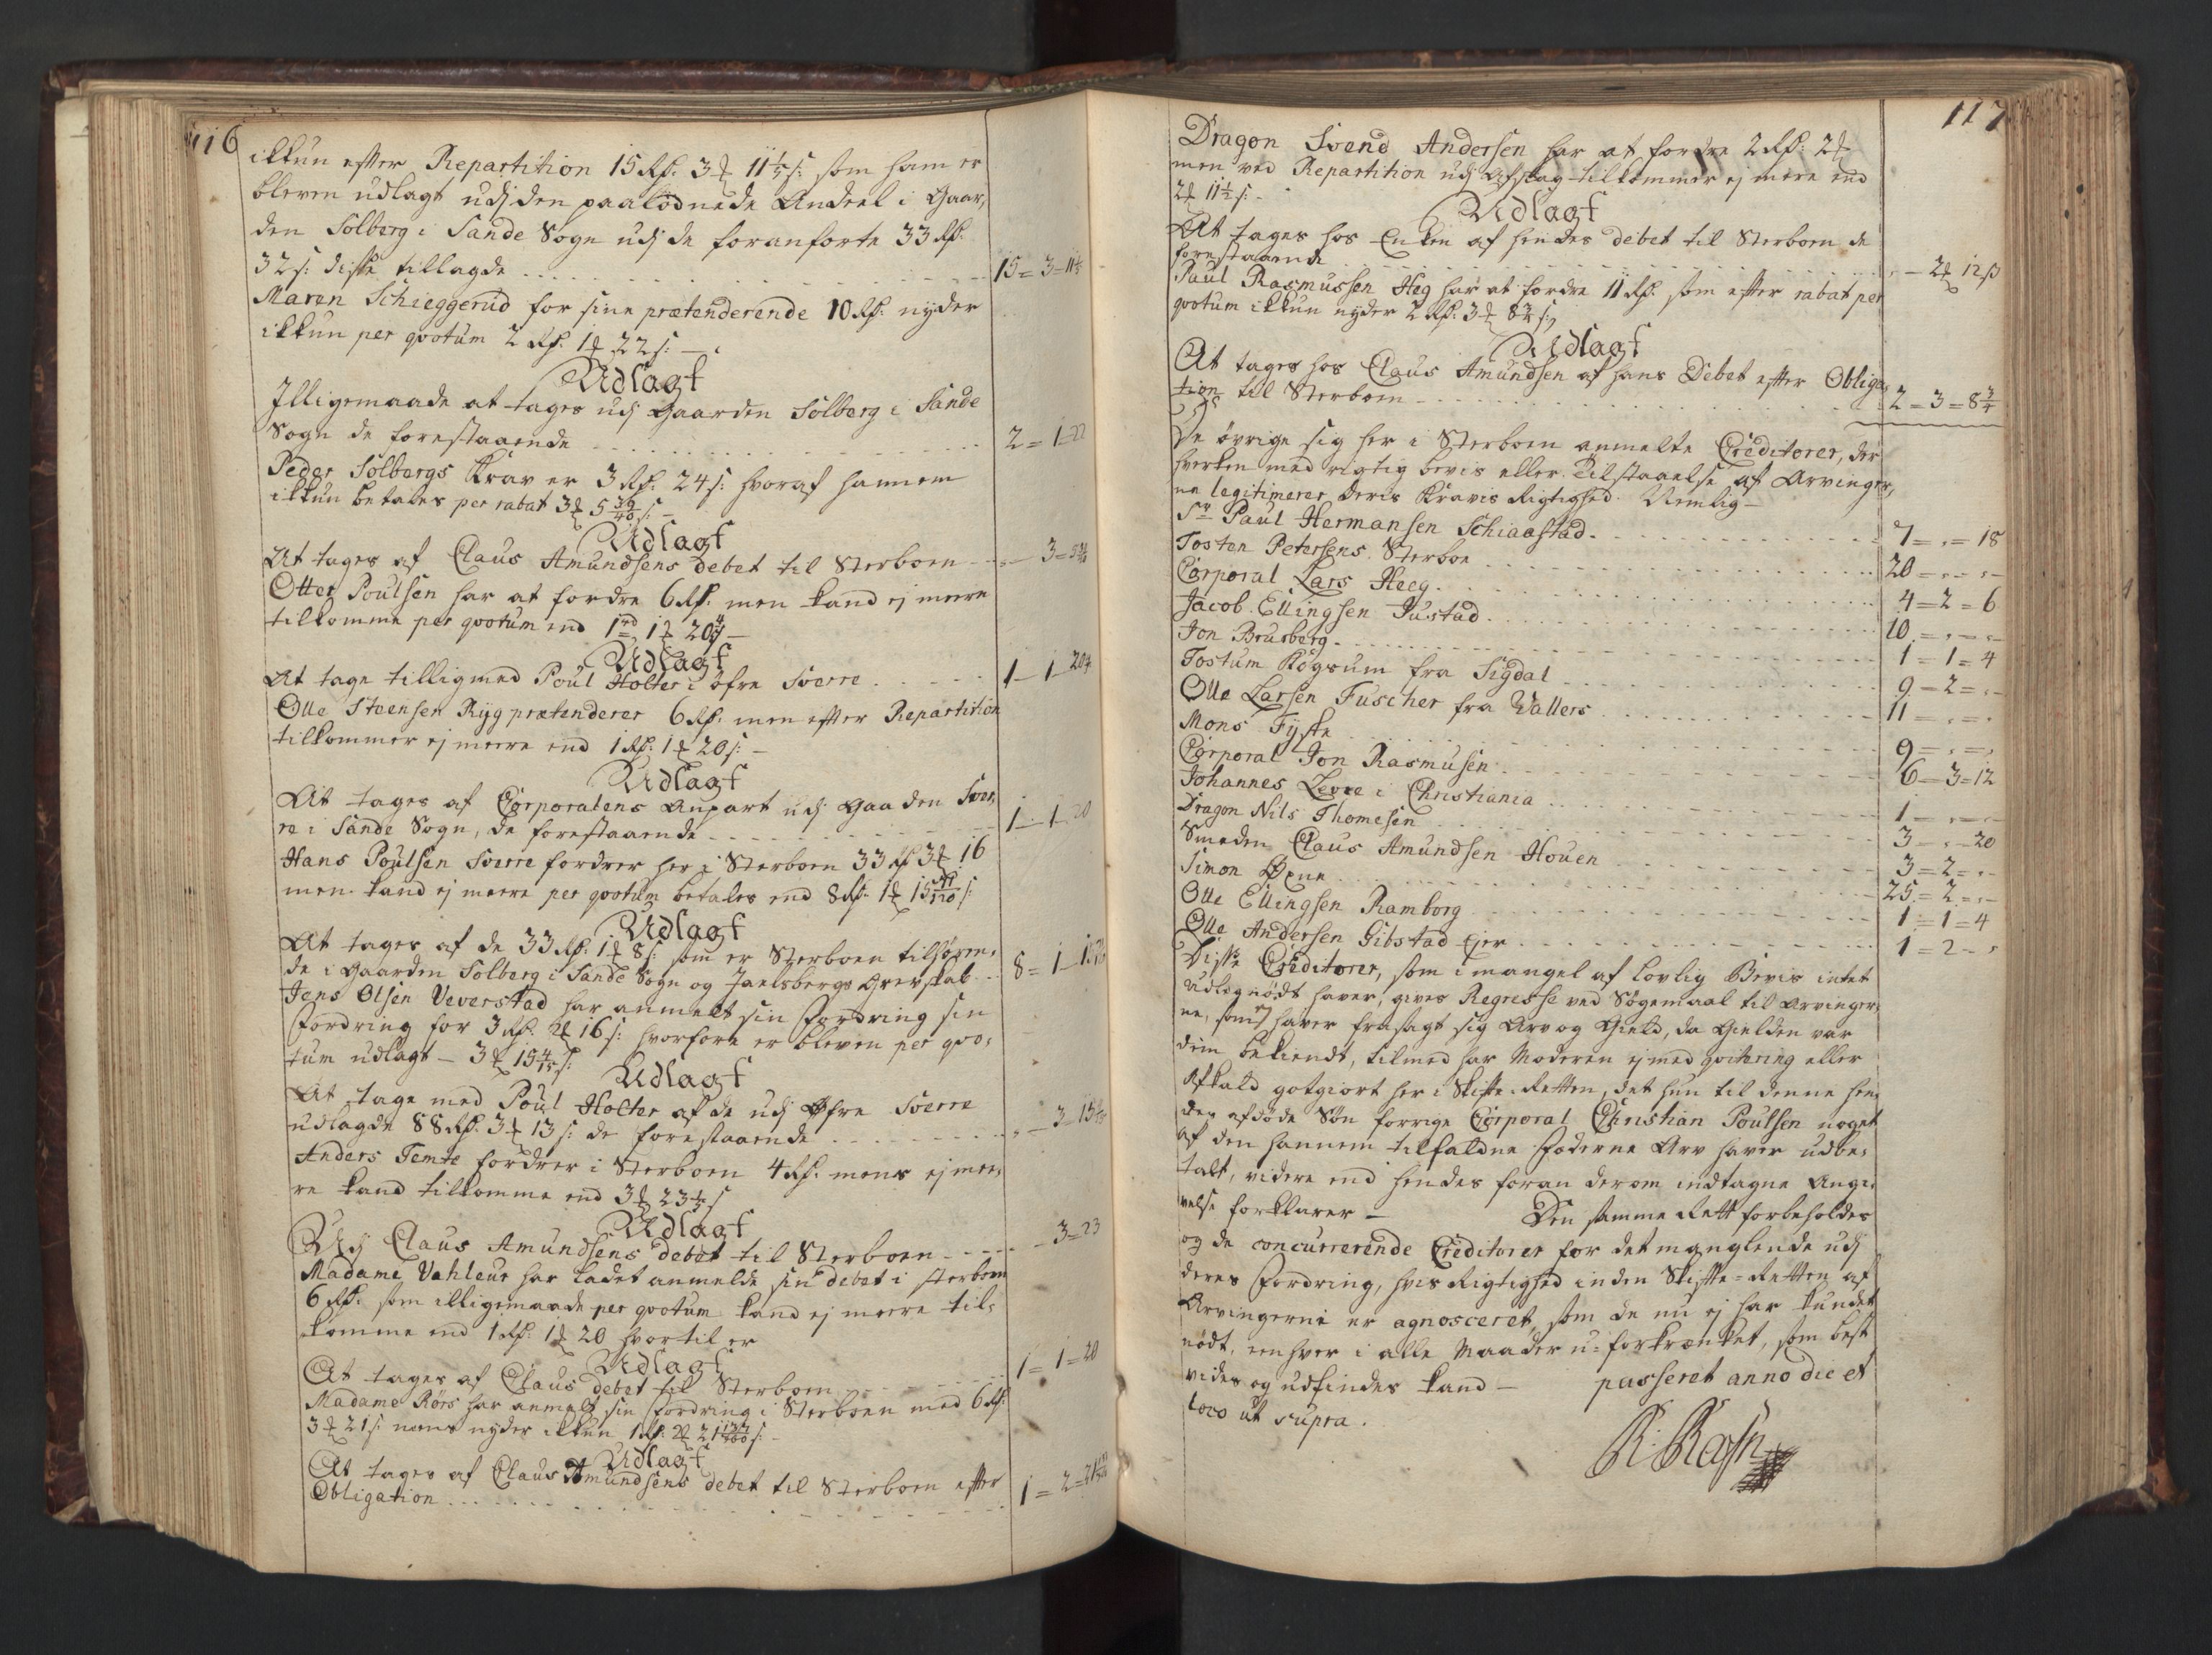 116
ikkun efter Repartition 15 Rd. 3 ort 11 1/5 s: som ham er
bleven udlagt udj den paalødnede Andeel i Gaar,
den Solberg i Sande Sogn udj de foranførte 33 Rd.
32 s: diste tillagde 15 = 3 - 11 1/5
Maren Schieggerud for sine prætenderende 10 Rd: nyder
ikkun per qvotum 2 Rd. 1 ort 22 s: -
Udlagt
Illigemaade at tages udj Gaarden Solberg i Sande
Sogn de forestaaende 2 = 1 - 22
Peder Solbergs Krav er 3 Rd. 24 s: hvoraf hannem
ikkun betales per rabat 3 ort 5 39/40 s: -
Udlagt
At tages af Claus Amundsens debet til Sterboen - 3 = 5 39/40
Otter Poulsen har at fordre 6 Rd. men kand ej meere
tilkomme per qvotum end 1 rd 1 ort 20 4/5 -
Udlagt
At tage tilligmed Poul Holter i øfre Sverre 1 - 1 - 20 4/5
Olle Steensen Ryg prætenderer 6 Rd: men efter Repartition
tilkommer ej meere end 1 Rd: 1 ort 20 s: -
Udlagt
At tages af Corporalens Anpart udj Gaarden Sver,
re i Sande Sogn, de forestaaende 1 - 1 - 20
Hans Poulsen Sverre fordrer her i Sterboen 33 Rd 3 ort 16
men kand ej meere per qvotum betales end 8 Rd. 1 ort 15 s:
Udlagt
At tages af de 33 Rd. 1 ort 8 s: som er Sterboen tilhøren,
de i Gaarden Solberg i Sande Sogn og Jarlsbergs Grevskab 8 = 1 - 15
Jens Olsen Veverstad har anmelt sin Fordring sin
Fordring for 3 Rd. 2 ort 16 s: hvorfore er bleven per qvo,
tum udlagt - 3 ort 15 4/15 s:
Udlagt
At tage med Poul Holter af de udj Øfre Sverre
udlagde 88 Rd. 3 ort 13 s: de forestaaende - 3 - 15 4/15
Anders Temte fordrer i Sterboen 4 Rd. mens ej mee,
re kand tilkomme end 3 ort 23 1/5 s
Udlagt
Udj Claus Amundsens debet til Sterboen - 3 = 23
Madame Vahleur har ladet anmelde sin debet i sterboen
6 Rd. som illigemaade per qvotum kand ej meere til,
komme end 1 Rd: 1 ort 20 hvortil er
Udlagt
At tages af Claus debet til Sterboen 1 = 1 = 20
Madame Rørs har anmelt sin Fordring i Sterboen med 6 Rd:
3 ort 21 s: mens nyder ikkun 1 Rd: 2 ort 21 s: -
Udlagt
At tages af Claus Amundsens debet til Sterboen efter
Obligation 1 = 2 = 21
117
Dragon Svend Andersen har at fordre 2 Rd: 2 ort
men ved Repartition udj Afslag tilkommer ej mere end
2 ort 11 1/2 s: -
Udlagt
At tages hos Enken af hendes debet til Sterboen de
forestaaende - 2 ort 12 s
Paul Rasmussen Heg har at fordre 11 Rd. som efter rabat per
qvotum ikkun nyder 2 Rd: 3 ort 8 3/4 s:
Udlagt
At tages hos Claus Amundsen af hans Debet efter Obliga,
tion til Sterboen 2 = 3 = 8 3/4
De øvrige sig her i Sterboen anmelte Creditorer, der
hverken med rigtig bevis eller Tilstaaelse af Arvinger,
ne legitimerer deris Kravis Rigtighed. Nemlig -
Sr Paul Hermansen Schiaastad 7 = - = 18
Tosten Petersens Sterboe 20 = - = -
Corporal Lars Heeg 4 = 2 = 6
Jacob Ellingsen Justad 10 = - = -
Jon Brusberg 1 = 1 = 4
Tostum Røgsum fra Sigdal 9 = 2 = -
Olle Larsen Fuscher fra Vallers 11 = - = -
Mons Fyske 9 = - = -
Corporal Jon Rasmusen 6 = 3 = 12
Johannes Levre i Christiania 1 = - = -
Dragon Nils Thomesen 3 - - - 20
Smeden Claus Amundsen Houen 3 = 2 = -
Simon Øxne 25 = 2 = -
Olle Ellingsen Ramborg 1 = 1 = 4
Olle Andersen Gibstad Ejer 1 = 2 - -
Disse Creditorer, som i mangel af lovlig Bevis intet
udlæg nødt haver, gives Regresse ved Søgemaal til Arvinger,
ne, som ej haver frasagt sig Arv og Gield, da Gielden var
dem bekiendt, tilmed har Moderen ej med qvitering eller
Afkald gotgiort her i Skifte Retten, det hun til denne hen,
des afdøde Søn forrige Corporal Christian Poulsen noget
af den hannem tilfaldne Fæderne Arv haver udbe,
talt, videre end hendes foran derom indtagne Angi,
velse forklarer - Den samme Rett forbeholdes
og de concurrerende Creditorer for det manglende udj
deres Fordring, hvis Rigtighed inden Skifte-Retten af
Arvingerne er agnosceret, som de nu ej har kundet
nødt, een hver i alle Maader u-forkrænket, som best
vides og udfindes kand - passeret anno die et
loco ut supra.